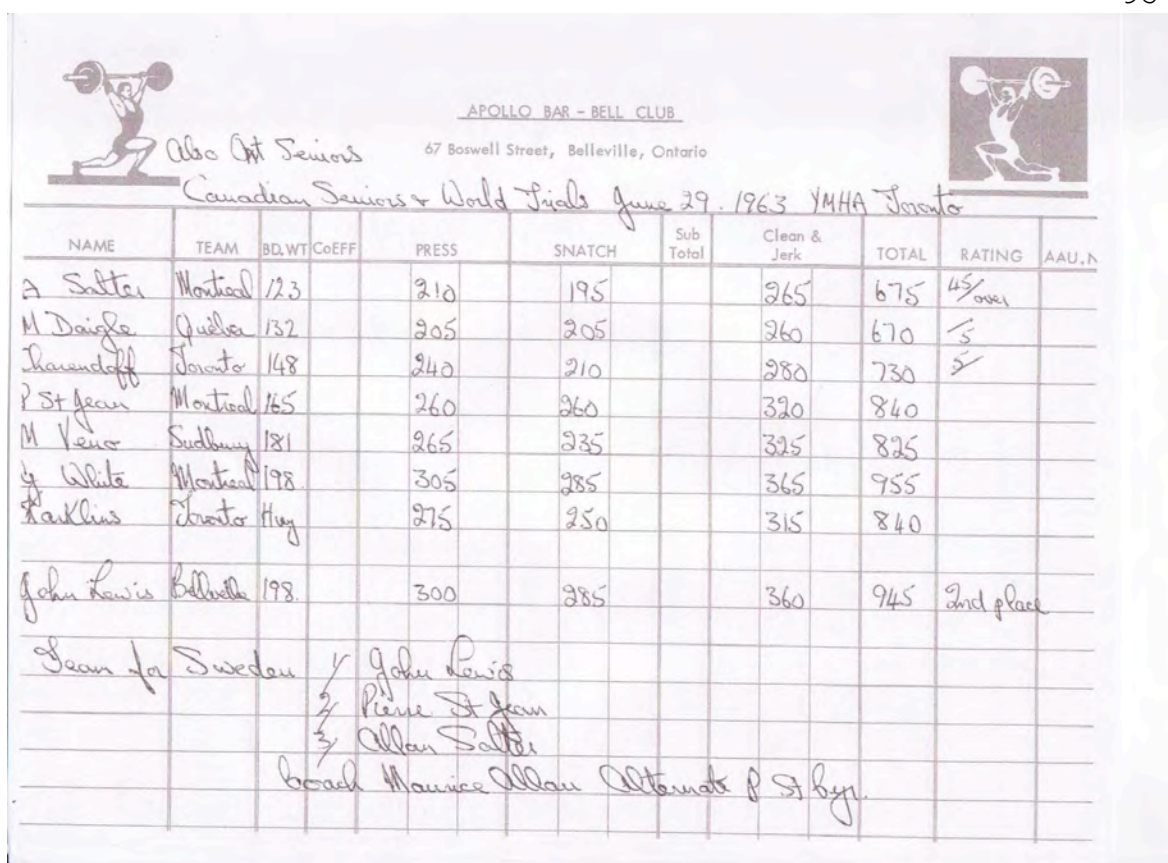 APOLLO BAR - BELL CLUB
67 Boswell Street, Belleville, Ontario
also Ont Seniors
Canadian Seniors & World Trials June 29. 1963 YMHA Toronto
NAME TEAM BD.WT CoEFF PRESS SNATCH Sub Total Clean & Jerk TOTAL RATING AAU.
A Salter Montreal 123 210 195 265 675 45/over
M Daigle Québec 132 205 205 260 670 /5
Toronto 148 240 210 280 730 5/
P St Jean Montreal 165 260 260 320 840
M Veno Sudbury 181 265 235 325 825
White Montreal 198 305 285 365 955
Karklins Toronto Hvy 275 250 315 840
John Lewis Belleville 198. 300 285 360 945 2nd place
Team for Sweden 1/ John Lewis
2/ Pierre St Jean
3/ Allan Salter
Coach Maurice Allan Alternate P St